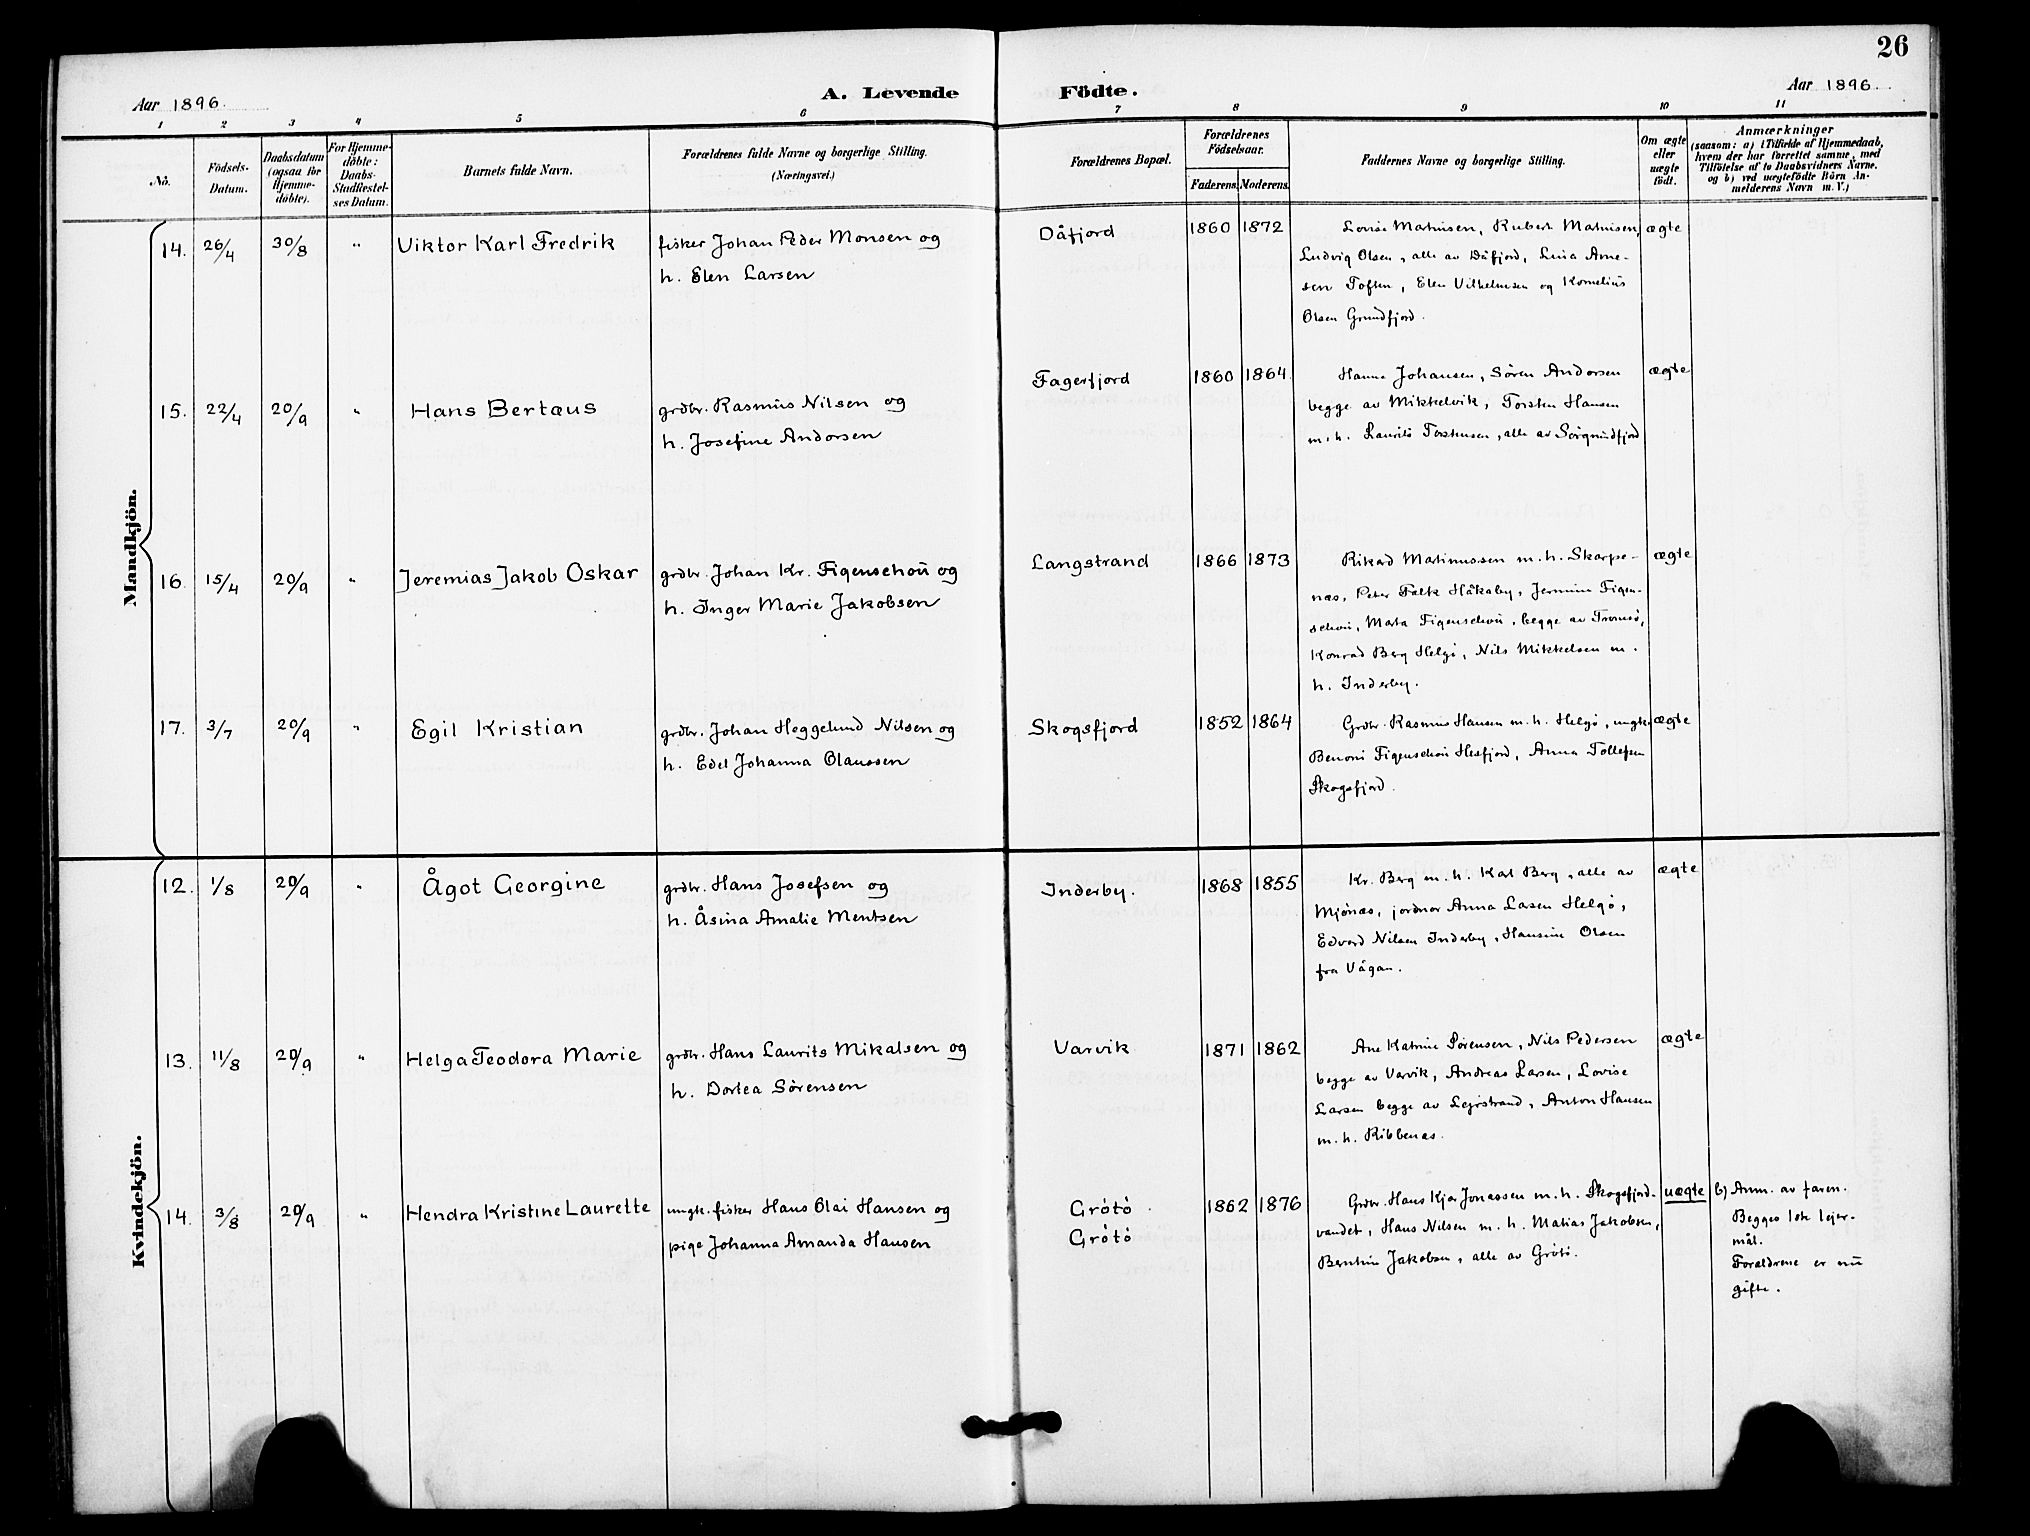 26
Aar 1896.
A. Levende
Födte.
Aar 1896.
1 2 3 4 5 6 7 8 9 10 11
No.
Födsels-
Datum.
Daabsdatum
(ogsaa for
Hjemme-
döbte).
For Hjemme-
döbte:
Daabs-
Stadfæstel-
ses Datum.
Barnets fulde Navn.
Forældrenes fulde Navne og borgerlige Stilling.
(Næringsvei.)
Forældrenes Bopæl.
Forældrenes
Födselsaar.
Faderens. Moderens.
Faddernes Navne og borgerlige Stilling.
Om ægte
eller
uægte
födt.
Anmærkninger
(saasom: a) i Tilfælde af Hjemmedaab,
hvem der har forrettet samme, med
Tilföielse af to Daabsvidners Navne.
og b) ved uægtefödte Börn An-
melderens Navn m. V.)
Mandkjön.
14. 26/4 30/8 " Viktor Karl Fredrik
fisker Johan Peder Monsen og
h. Elen Larsen
Dåfjord 1860 1872
Lovise Matnisen, Rubert Matnisen,
Ludvig Olsen, alle av Dåfjord, Lina Arne-
sen Toften, Elen Vilhelmsen og Kornelius
Olsen Grundfjord.
ægte
15. 22/4 20/9 " Hans Bertæus
grdbr. Rasmus Nilsen og
h. Josefine Andorsen
Fagerfjord 1860 1864.
Hanna Johansen, Sören Andorsen
begge av Mikkelvik, Torsten Hansen
m. h. Laurits Torstensen, alle av Sörgrundfjord
ægte
16. 15/4 20/9 " Jeremias Jakob Oskar
grdbr. Johan Kr. Figenschou og
h. Inger Marie Jakobsen
Langstrand 1866 1873
Rikard Matinussen m. h. Skarpe-
næs, Peter Falk Håkøby, Jermine Figen-
schou, Marta Figenschou, begge av Tromsö,
Konrad Berg Helgö, Nils Mikkelsen m.
h. Inderby.
ægte
17. 3/7 20/9 " Egil Kristian
grdbr. Johan Heggelund Nilsen og
h. Edel Johanna Olaussen
Skogsfjord 1852 1864
Grdbr. Rasmus Hansen m. h. Helgö, ungk.
Benoni Figenschou Hesfjord, Anna Tollefsen
Skogsfjord.
ægte
Kvindekjön.
12. 1/8 20/9 " Ågot Georgine
grdbr. Hans Josefsen og
h. Åsina Amalie Mentsen
Inderby. 1868 1855
Kr. Berg m. h. Karl Berg, alle av
Mjönæs, jordmor Anna Larsen Helgö,
Edvard Nilsen Inderby, Hansine Olsen
fra Vågan.
ægte
13. 11/8 20/9 " Helga Teodora Marie
grdbr. Hans Laurits Mikalsen og
h. Dortea Sörensen
Varvik 1871 1862
Ane Katrine Sörensen, Nils Pedersen
begge av Varvik, Andreas Larsen, Lovise
Larsen begge av Leirstrand, Anton Hansen
m. h. Ribbenæs.
ægte
14. 3/8 20/9 " Hendra Kristine Laurette
ungk. fisker Hans Olai Hansen og
pige Johanna Amanda Hansen
Grötö
Grötö
1862 1876
Grdbr. Hans Kjær Jonassen m. h. Skogsfjord-
vandet, Hans Nilsen m. h. Matias Jakobsen,
Berntine Jakobsen, alle av Grötö.
uægte
b) Anm. av faren.
Begges 1ste lejer-
mål.
Forældrene er nu
gifte.